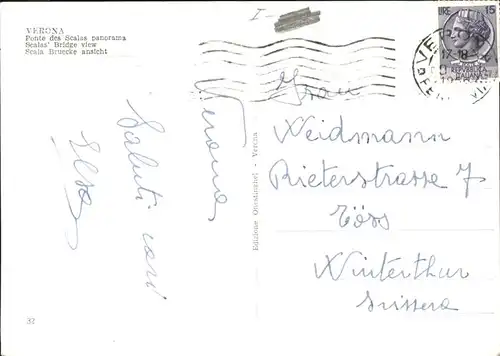 VERONA
Ponte des Scalas panorama
Scalas' Bridge view
Scala Bruecke ansicht
I -
LIRE 15
17-18
REPUBBLICA
ITALIANA
Verona
Saluti cari
Elsa
Edizione - Verona
Frau
Weidmann
Rieterstrasse 7
Töss
Winterthur
Svizzera
37